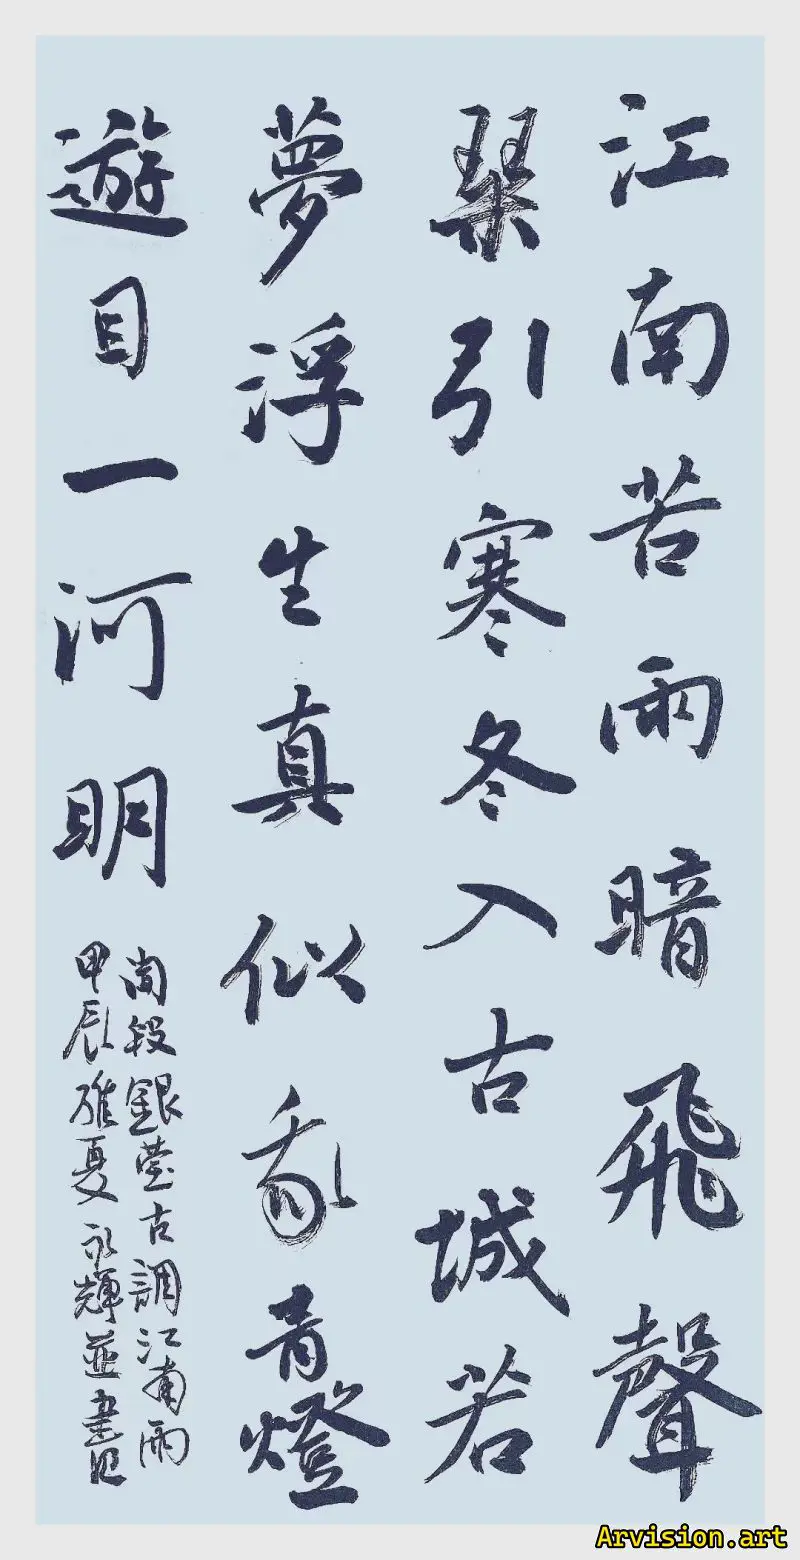 江南苦雨暗飛聲
琹引寒冬入古城若
夢浮生真似亂青燈
遊目一河明
銀古調江南雨
甲辰雅夏永輝並書
Arvision.art